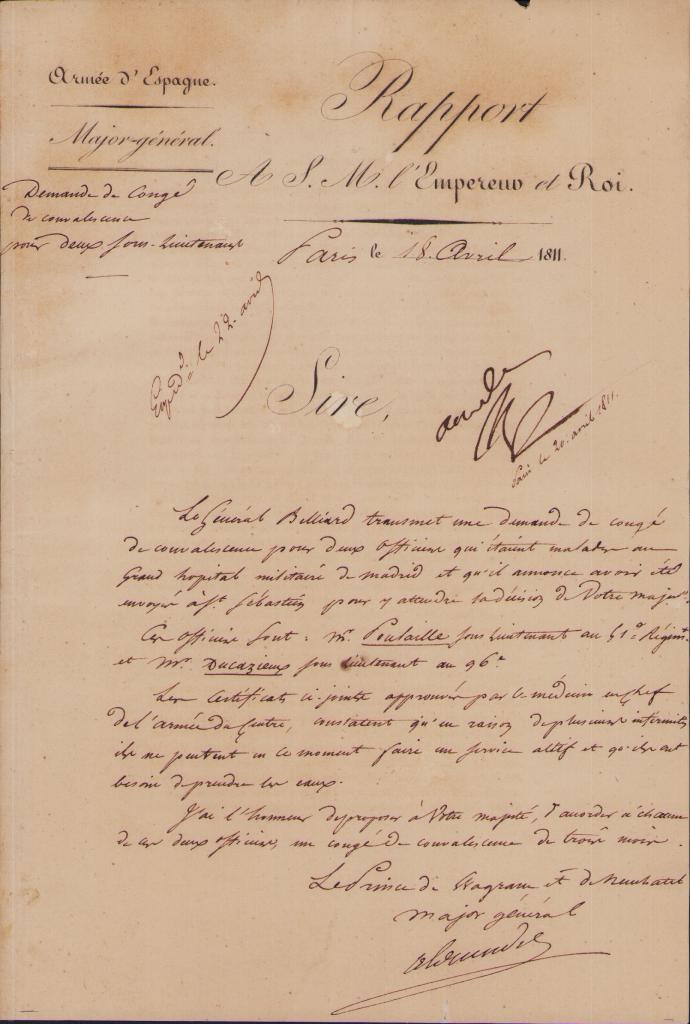 Armée d'Espagne.
Major-général.
Demande de Congé
de convalescence
pour deux Sous-lieutenants
Rapport
A S. M. l'Empereur et Roi.
Paris le 18. Avril 1811.
Expéd. le 22. avril
Sire,
Paris le 20. avril 1811.
Le Général Belliard transmet une demande de congé
de convalescence pour deux officiers qui étaient malades au
Grand hopital militaire de madrid et qu'il annonce avoir été
envoyés à St. Sébastien pour y attendre la décision de Votre majesté.
Ces officiers sont: Mr. Poulaille sous lieutenant au 51e Régimt.
et Mr. Ducazieux sous lieutenant au 96e
Les certificats ci-joints approuvés par le médecin en chef
de l'armée du Centre, constatent qu'en raison de plusieurs infirmités
ils ne peuvent en ce moment faire un service actif et qu'ils ont
besoin de prendre les eaux.
J'ai l'honneur de proposer à Votre majesté, d'accorder à chacun
de ces deux officiers, un congé de convalescence de trois mois.
Le Prince de Wagram et de Neuchatel
Major général
Alexandre